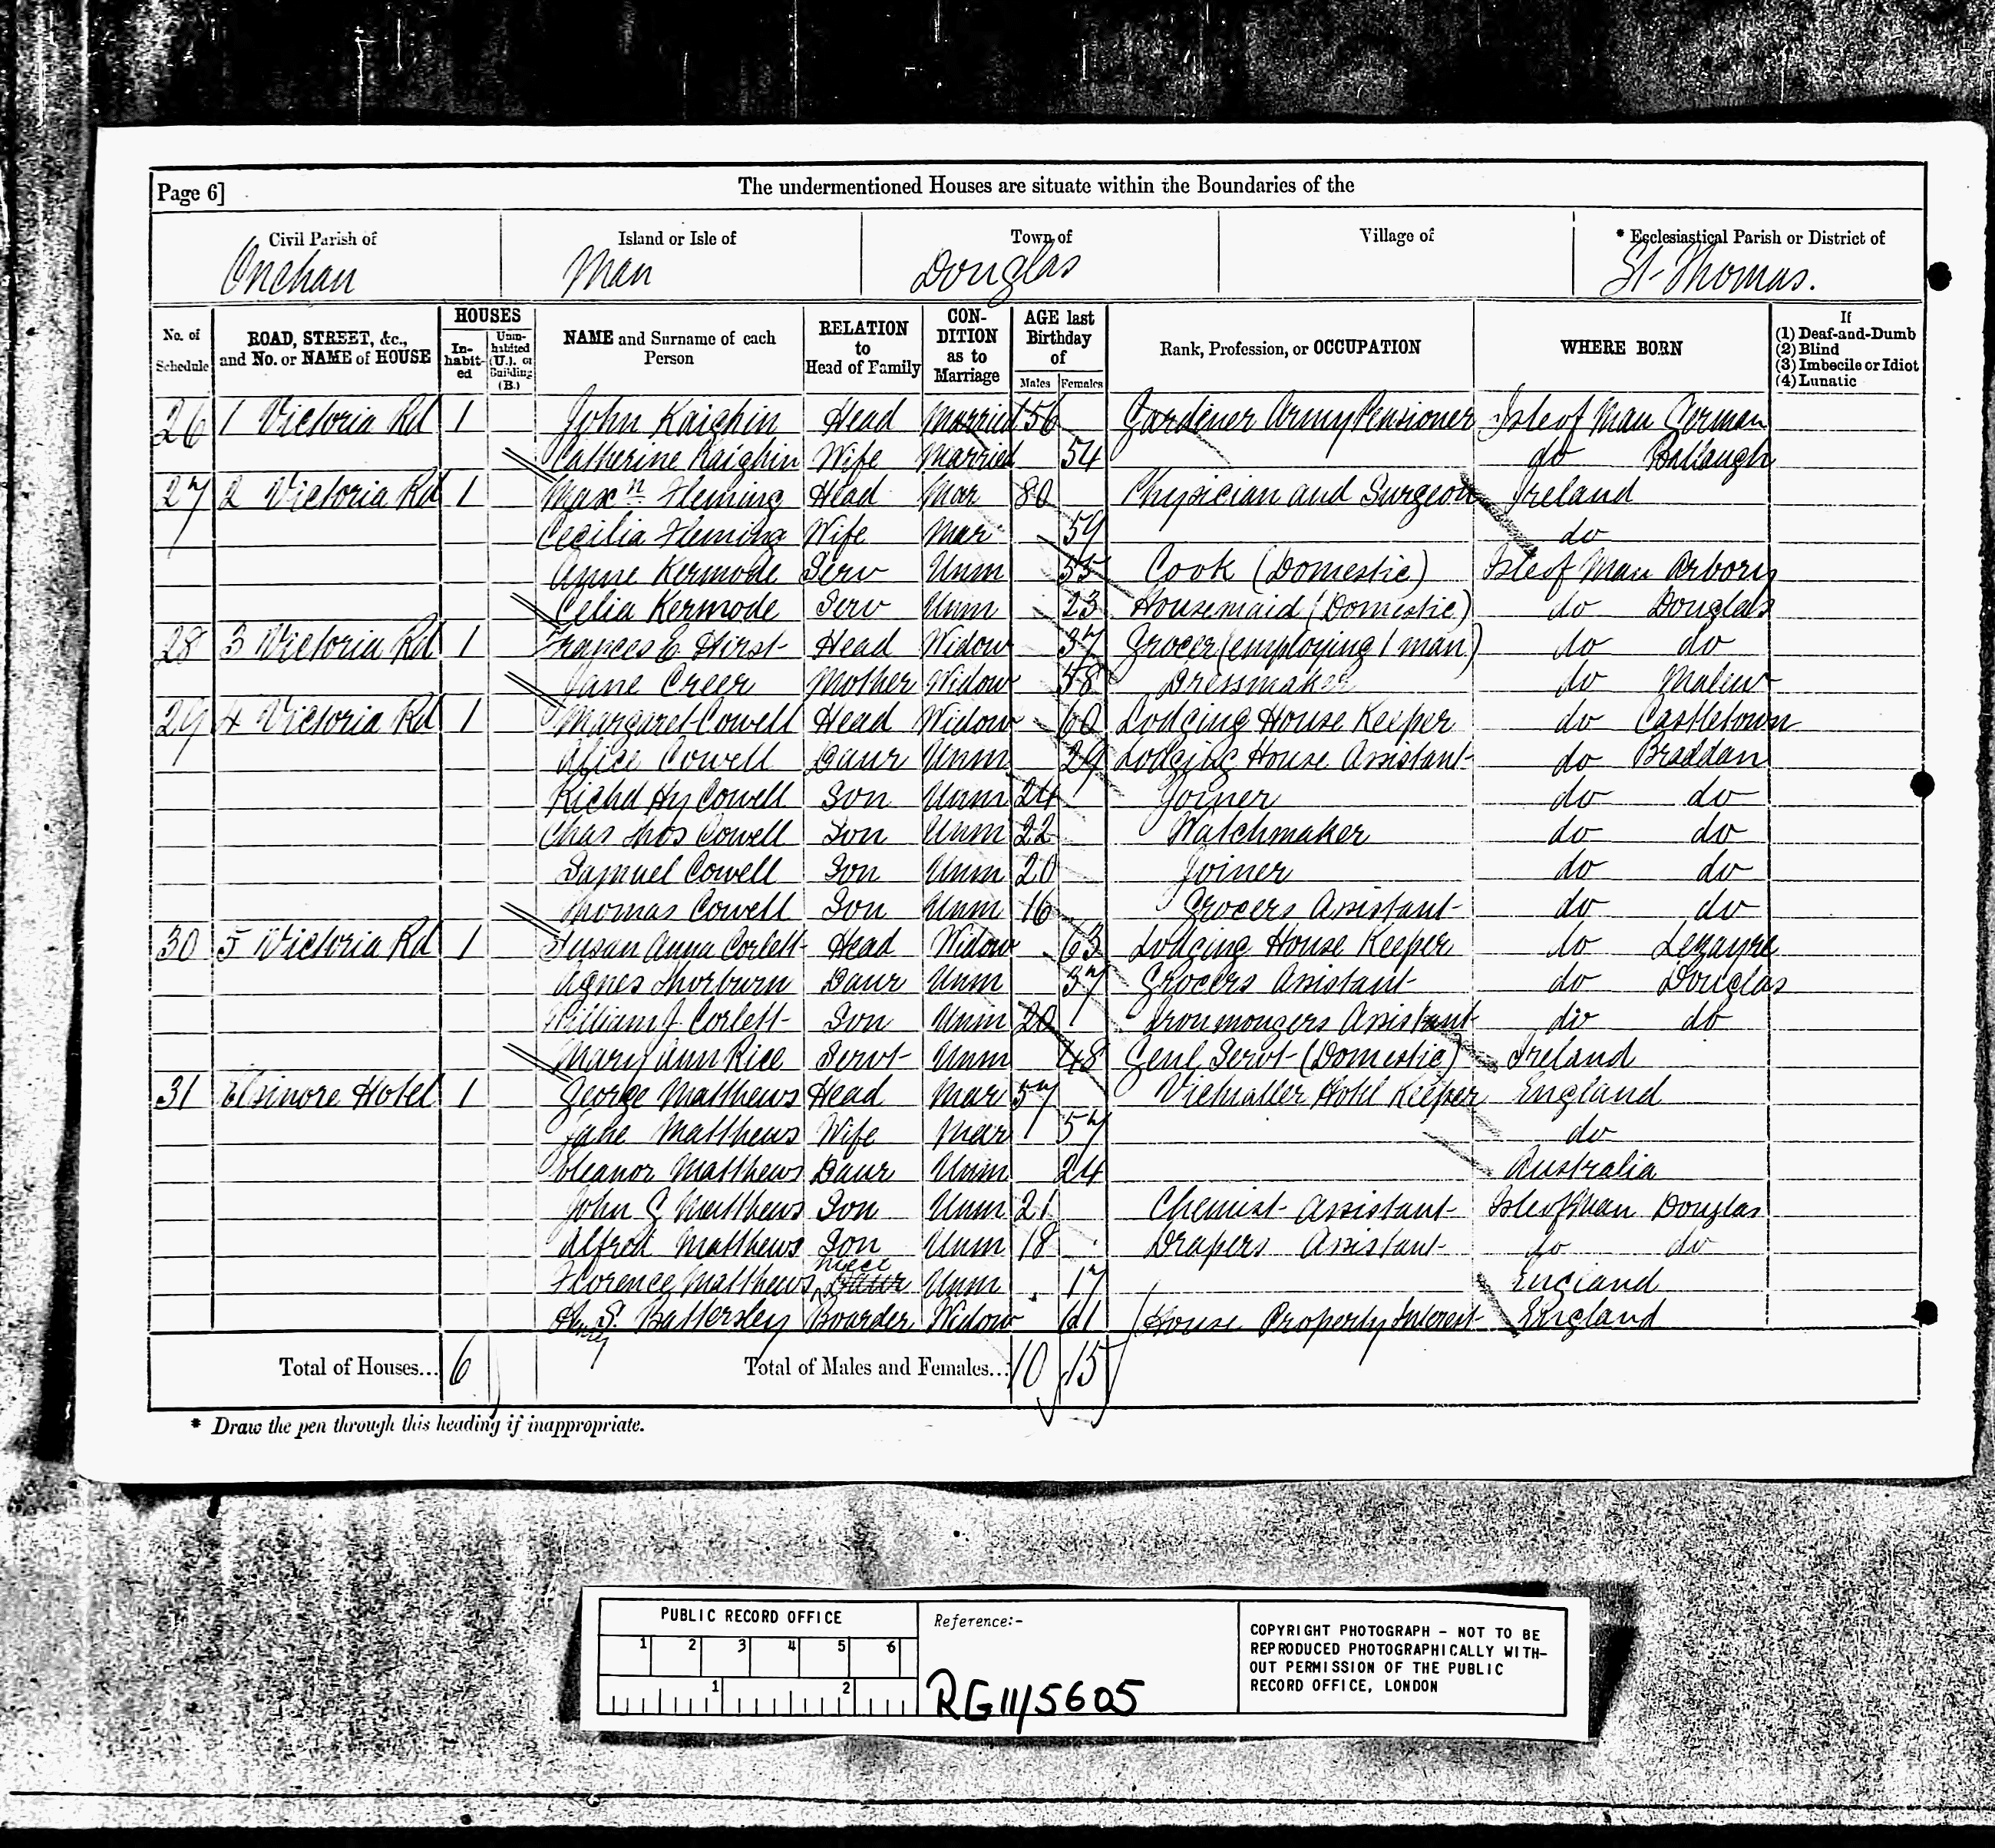 Page 6] The undermentioned Houses are situate within the Boundaries of the
Civil Parish of Island or Isle of Town of Village of * Ecclesiastical Parish or District of
Onchan Man Douglas St. Thomas.
No. of Schedule ROAD, STREET, &c., and No. or NAME of HOUSE HOUSES In-habit-ed Unin-habited (U.), or Building (B.) NAME and Surname of each Person RELATION to Head of Family CON-DITION as to Marriage AGE last Birthday of Males Females Rank, Profession, or OCCUPATION WHERE BORN If (1) Deaf-and-Dumb (2) Blind (3) Imbecile or Idiot (4) Lunatic
26 1 Victoria Rd 1 John Kaighin Head Married 56 Gardener Army Pensioner Isle of Man German
Catherine Kaighin Wife Married 54 do Ballaugh
27 2 Victoria Rd 1 Maxn Fleming Head Mar 80 Physician and Surgeon Ireland
Cecilia Fleming Wife Mar 59 do
Anne Kermode Serv Unm 55 Cook (Domestic) Isle of Man Arbory
Celia Kermode Serv Unm 23 Housemaid (Domestic) do Douglas
28 3 Victoria Rd 1 Frances E Hirst Head Widow 37 Grocer (employing 1 man) do do
Jane Creer Mother Widow 58 Dressmaker do Malew
29 4 Victoria Rd 1 Margaret Cowell Head Widow 60 Lodging House Keeper do Castletown
Alice Cowell Daur Unm 29 Lodging House Assistant do Braddan
Richd Hy Cowell Son Unm 24 Joiner do do
Chas Thos Cowell Son Unm 22 Watchmaker do do
Samuel Cowell Son Unm 20 Joiner do do
Thomas Cowell Son Unm 16 Grocers Assistant do do
30 5 Victoria Rd 1 Susan Anna Corlett Head Widow 63 Lodging House Keeper do Lezayre
Agnes Thorburn Daur Unm 37 Grocers Assistant do Douglas
William J Corlett Son Unm 20 Ironmongers Assistant do do
Mary Ann Rice Servt Unm 48 Genl Servt (Domestic) Ireland
31 Elsinore Hotel 1 George Matthews Head Mar 57 Victualler Hotel Keeper England
Jane Matthews Wife Mar 57 do
Eleanor Matthews Daur Unm 24 Australia
John G Matthews Son Unm 21 Chemist Assistant Isle of Man Douglas
Alfred Matthews Son Unm 18 Drapers Assistant do do
Florence Matthews Daur Niece Unm 17 England
S. Battersley Boarder Widow 61 House Property Interest England
Total of Houses... 6 Total of Males and Females... 10 15
* Draw the pen through this heading if inappropriate.
PUBLIC RECORD OFFICE
1 2 3 4 5 6
1 2
Reference:-
RG11/5605
COPYRIGHT PHOTOGRAPH - NOT TO BE
REPRODUCED PHOTOGRAPHICALLY WITH-
OUT PERMISSION OF THE PUBLIC
RECORD OFFICE, LONDON